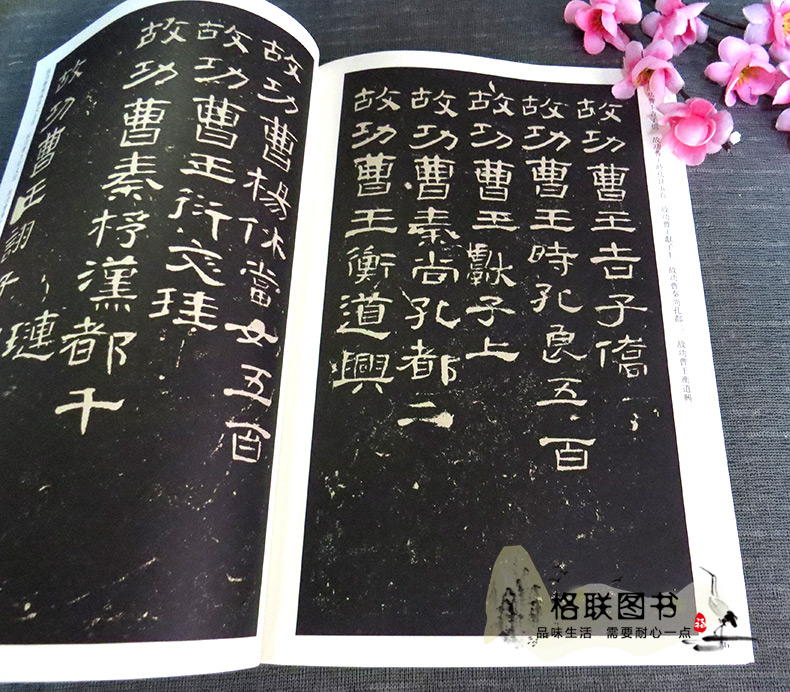 故功曹王吉子僑
故功曹王時孔良五百
故功曹王獻子上
故功曹秦尚孔都二
故功曹王衡道興
故功曹王時孔良五百 故功曹王獻子上 故功曹秦尚孔都二 故功曹王衡道興
故功曹楊休當女五百
故功曹王衍文珪
故功曹秦杼漢都千
故功曹王詡子
格联图书
品味生活 需要耐心一点